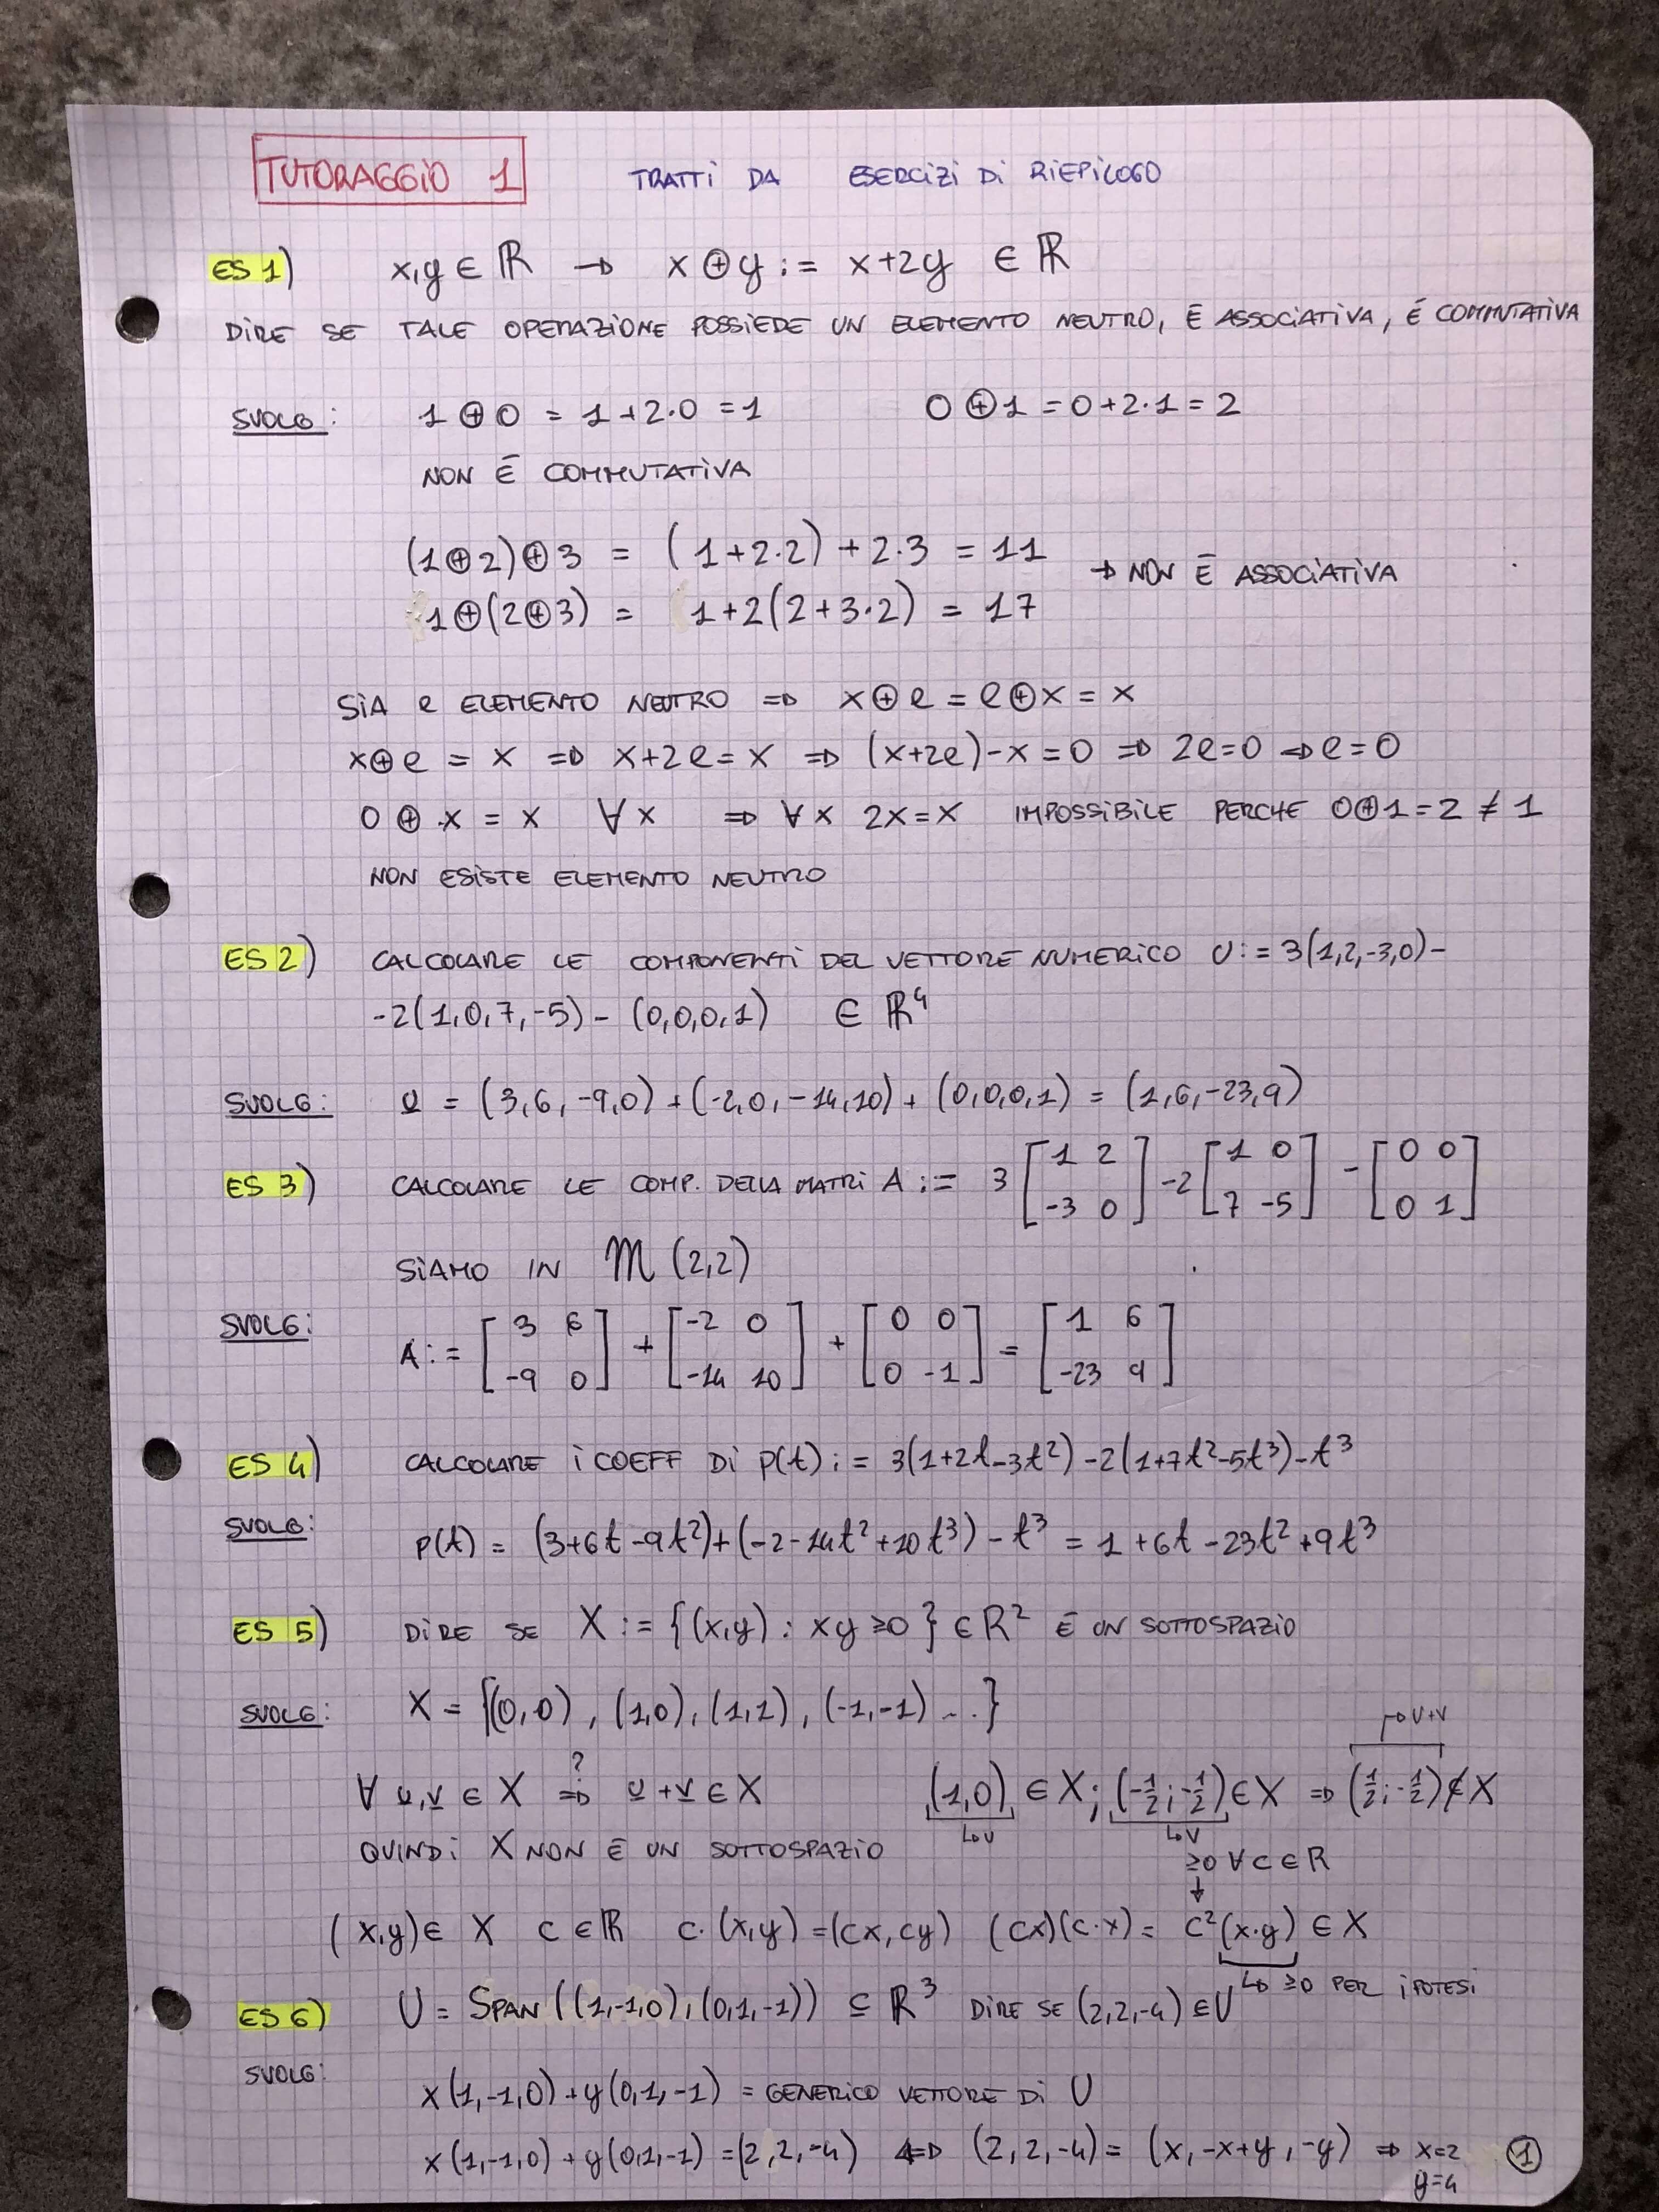 TUTORAGGIO 1 TRATTI DA ESERCIZI DI RIEPILOGO
ES 1) x,y ∈ ℝ → x ⊕ y := x+2y ∈ ℝ
DIRE SE TALE OPERAZIONE POSSIEDE UN ELEMENTO NEUTRO, É ASSOCIATIVA, É COMMUTATIVA
SVOLG: 1 ⊕ 0 = 1+2·0 = 1 0 ⊕ 1 = 0+2·1 = 2
NON É COMMUTATIVA
(1⊕2)⊕3 = (1+2·2)+2·3 = 11 → NON É ASSOCIATIVA
1⊕(2⊕3) = 1+2(2+3·2) = 17
SIA e ELEMENTO NEUTRO ⇒ x⊕e = e⊕x = x
x⊕e = x ⇒ x+2e = x ⇒ (x+2e)-x = 0 ⇒ 2e=0 ⇒ e=0
0 ⊕ x = x ∀x ⇒ ∀x 2x=x IMPOSSIBILE PERCHE 0⊕1=2 ≠ 1
NON ESISTE ELEMENTO NEUTRO
ES 2) CALCOLARE LE COMPONENTI DEL VETTORE NUMERICO U := 3(1,2,-3,0)-
-2(1,0,7,-5) - (0,0,0,1) ∈ ℝ⁴
SVOLG: u = (3,6,-9,0)+(-2,0,-14,10)+(0,0,0,1) = (1,6,-23,9)
ES 3) CALCOLARE LE COMP. DELLA MATRI A := 3 [1 2; -3 0] -2 [1 0; 7 -5] - [0 0; 0 1]
SIAMO IN M (2,2)
SVOLG: A := [3 6; -9 0] + [-2 0; -14 10] + [0 0; 0 -1] = [1 6; -23 9]
ES 4) CALCOLARE i COEFF DI P(t) := 3(1+2t-3t²)-2(1+7t²-5t³)-t³
SVOLG: P(t) = (3+6t-9t²)+(-2-14t²+10t³)-t³ = 1+6t-23t²+9t³
ES 5) DIRE SE X := {(x,y) : xy ≥0 } ∈ ℝ² É UN SOTTOSPAZIO
SVOLG: X = {(0,0), (1,0), (1,1), (-1,-1) ...}
↱ U+V
∀ u,v ∈ X ⇒? u+v ∈ X (1,0) ∈ X; (-1/2;-1/2) ∈ X ⇒ (1/2;-1/2) ∉ X
↳U ↳V
QUINDI X NON É UN SOTTOSPAZIO
≥0 ∀ c ∈ ℝ
↓
(x,y) ∈ X C ∈ ℝ C·(x,y) = (cx,cy) (cx)(c·x) = c²(x·y) ∈ X
↳ ≥0 PER IPOTESI
ES 6) U = SPAN((1,-1,0),(0,1,-1)) ⊆ ℝ³ DIRE SE (2,2,-4) ∈ U
SVOLG:
x(1,-1,0)+y(0,1,-1) = GENERICO VETTORE DI U
x(1,-1,0)+y(0,1,-1) = (2,2,-4) ⇔ (2,2,-4) = (x,-x+y,-y) ⇒ x=2
y=4
1